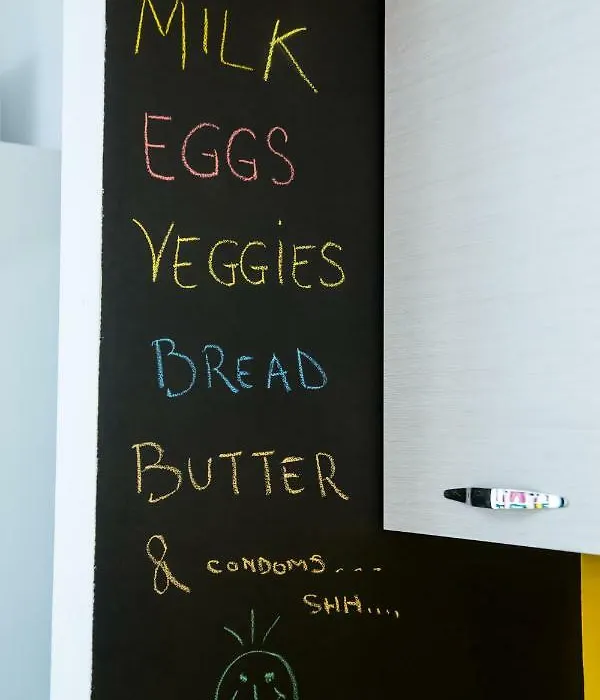 MILK
EGGS
VEGGiES
BREAD
BUTTER
& CONDOMS...
SHH....